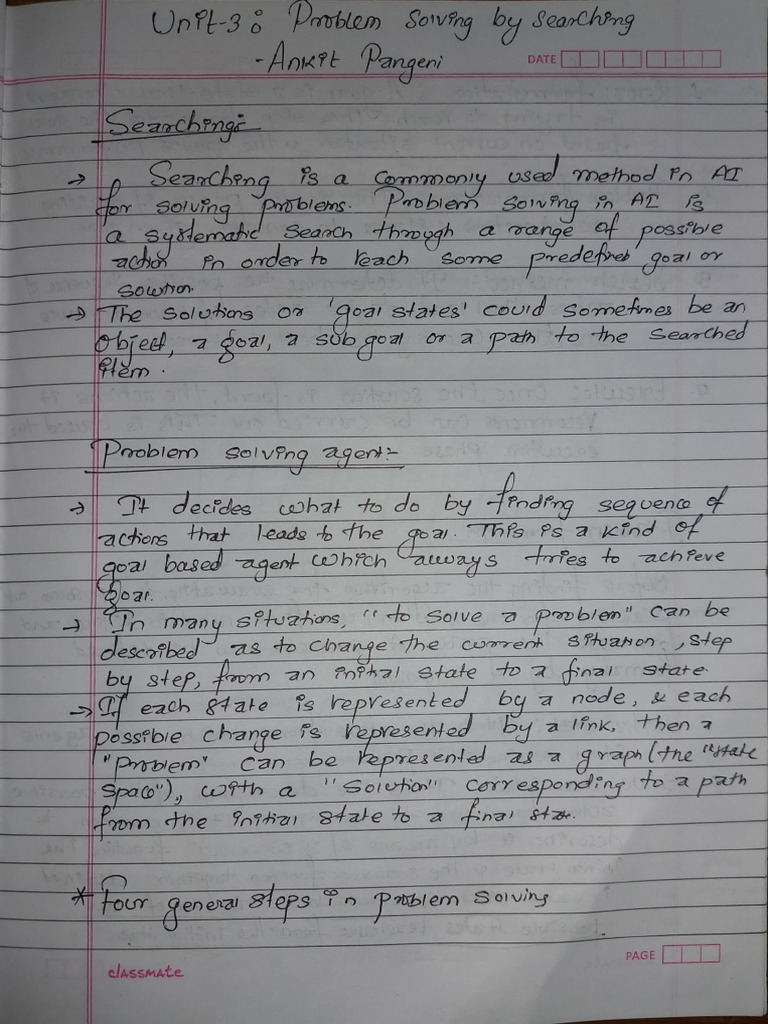 Unit-3: Problem Solving by Searching
-Ankit Pangeni
DATE
Searching:-
→ Searching is a commonly used method in AI
for solving problems. Problem solving in AI is
a systematic search through a range of possible
action in order to reach some predefined goal or
solution.
→ The solutions or 'goal states' could sometimes be an
object, a goal, a sub goal or a path to the searched
item.
Problem solving agent:-
→ It decides what to do by finding sequence of
actions that leads to the goal. This is a kind of
goal based agent which always tries to achieve
goal.
→ In many situations, "to solve a problem" can be
described as to change the current situation, step
by step, from an initial state to a final state.
→ If each state is represented by a node, & each
possible change is represented by a link, then a
"Problem" can be represented as a graph (the "state
space"), with a "solution" corresponding to a path
from the initial state to a final state.
* Four general steps in problem solving
PAGE
classmate